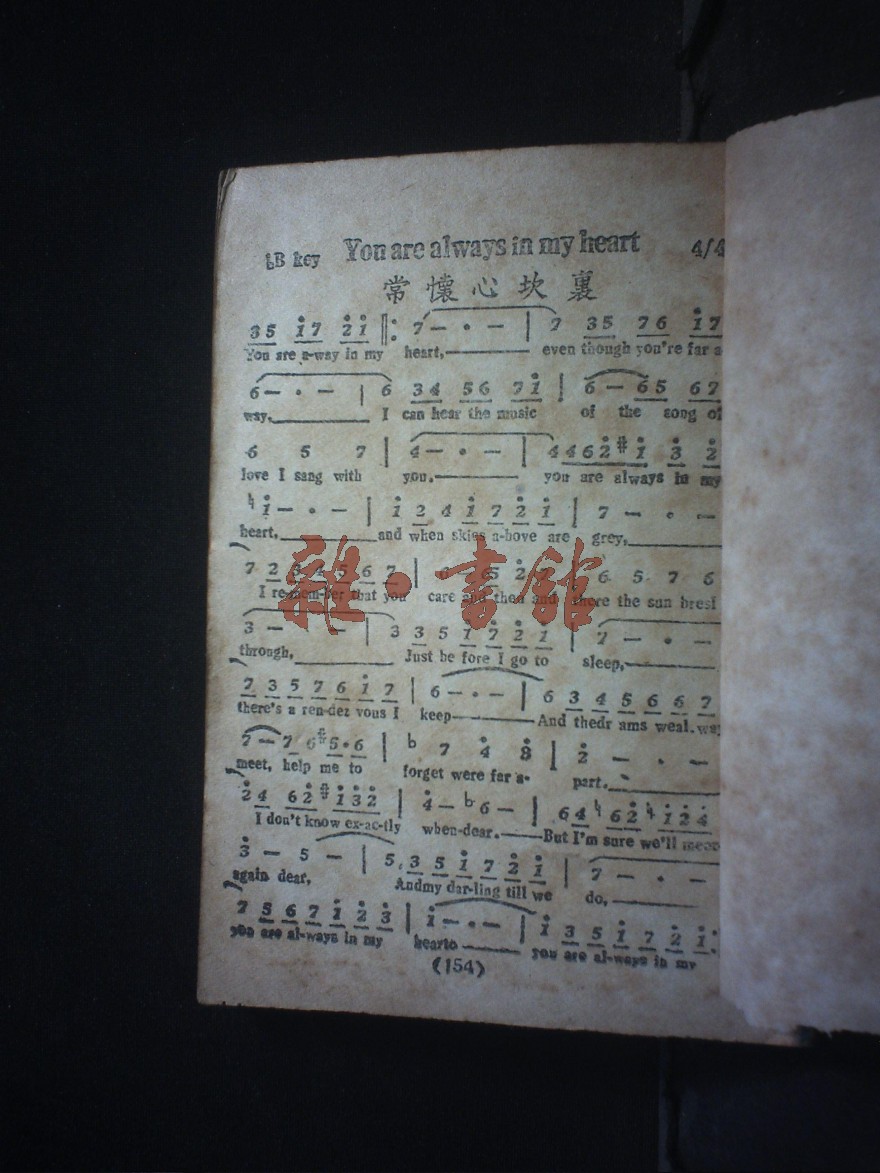 ♭B key You are always in my heart 4/4
常懷心坎裏
35 i7 2i ‖: 7 — · — | 7 35 76 i7
You are a-way in my heart, even though you're far a-
6 — · — | 6 34 56 7i | 6 — 65 67
way, I can hear the music of the song of
6 5 7 | 4 — · — | 4462 #i 3 2
love I sang with you, you are always in my
♮i — · — | i 2 4 i 7 2 i | 7 — · —
heart, and when skies a-bove are grey,
7 2 3 4 5 6 7 | 6 5 7 6
I re-mem-ber that you care and then and there the sun
3 — — | 3 3 5 i 7 2 i | 7 — · —
through, Just be fore I go to sleep,
7 3 5 7 6 i 7 | 6 — · — | 6 3 4 5 6 6 7
there's a ren-dez vous I keep And thedr ams weal.way
7 — 7 6 #5·6 | ♭7 4 3 | 2 — · —
meet, help me to forget were far a- part.
2 4 62 #i32 | 4 — ♭6 — | 64 ♮62 ♮i24
I don't know ex-ac-tly when-dear. But I'm sure we'll
3 — 5 — | 5 3 5 i 7 2 i | 7 — · —
again dear, Andmy dar-ling till we do,
7 5 6 7 i 2 3 | i — · — | i 3 5 i 7 2 i :
you are al-ways in my hearto you are al-ways in my
(154)
雜·書館